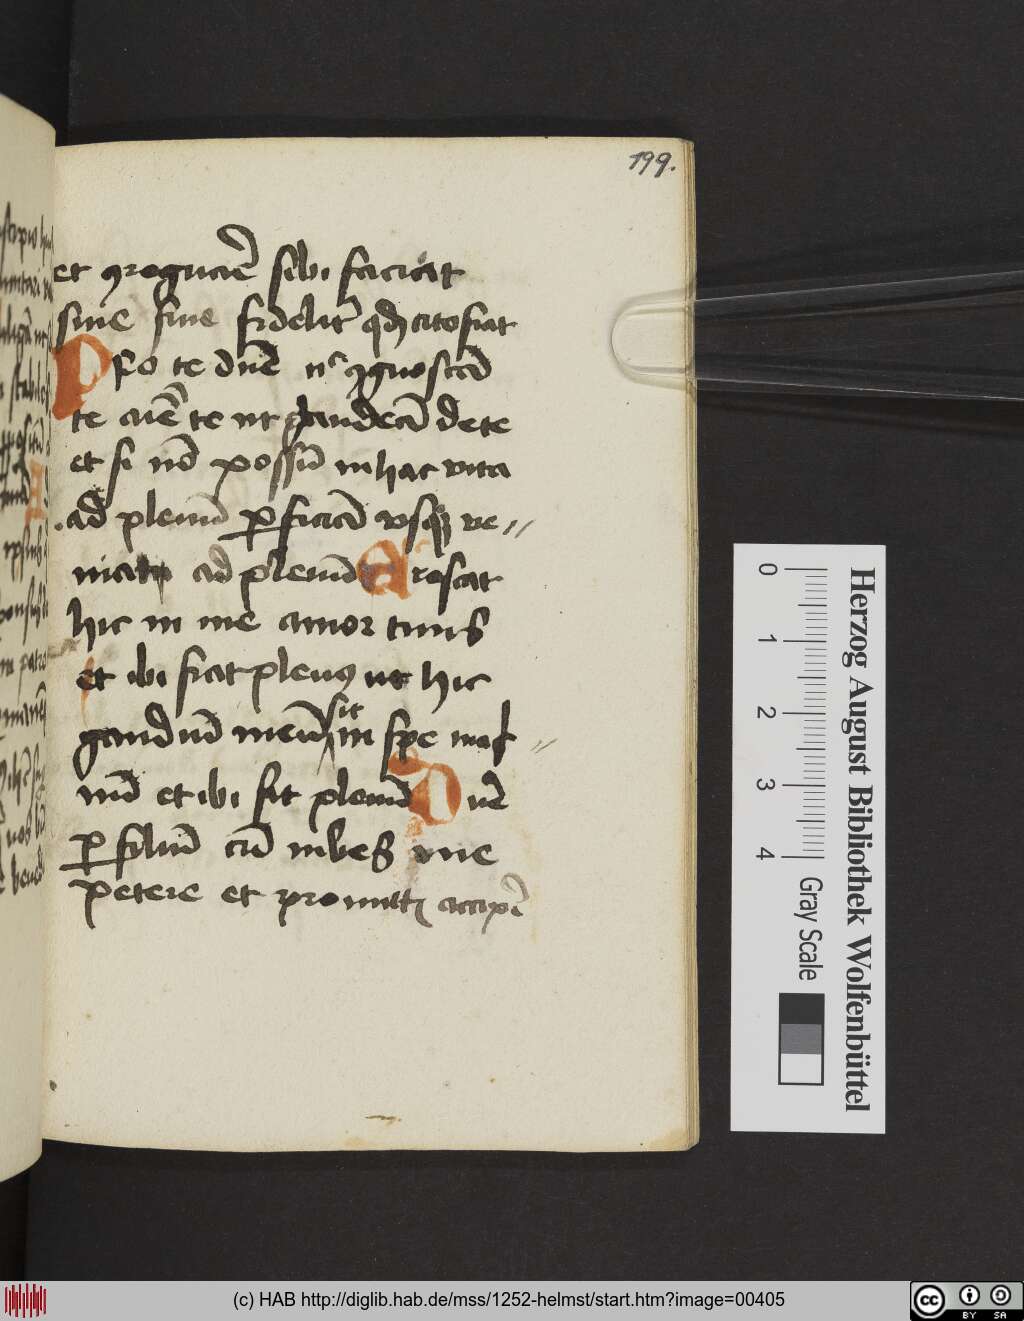 199.
et ꝯregnare sibi faciat
sine fine fideliter qd cito fiat
Oro te dnē ut ꝯgnoscā
te amē te ut gaudeā de te
et si nō possū in hac vita
ad plenū ꝑficiā usqꝫ ve //
niat ad plenū Crescat
hic in me amor tuus
et ibi fiat plenꝰ ut hic
gaudiū meū sit in spe maf //
nū et ibi sit plenū Dnē
ꝑ filiū tuū iubes me
petere et promittis accipe
Herzog August Bibliothek Wolfenbüttel
0 1 2 3 4 Gray Scale
(c) HAB http://diglib.hab.de/mss/1252-helmst/start.htm?image=00405
cc BY SA